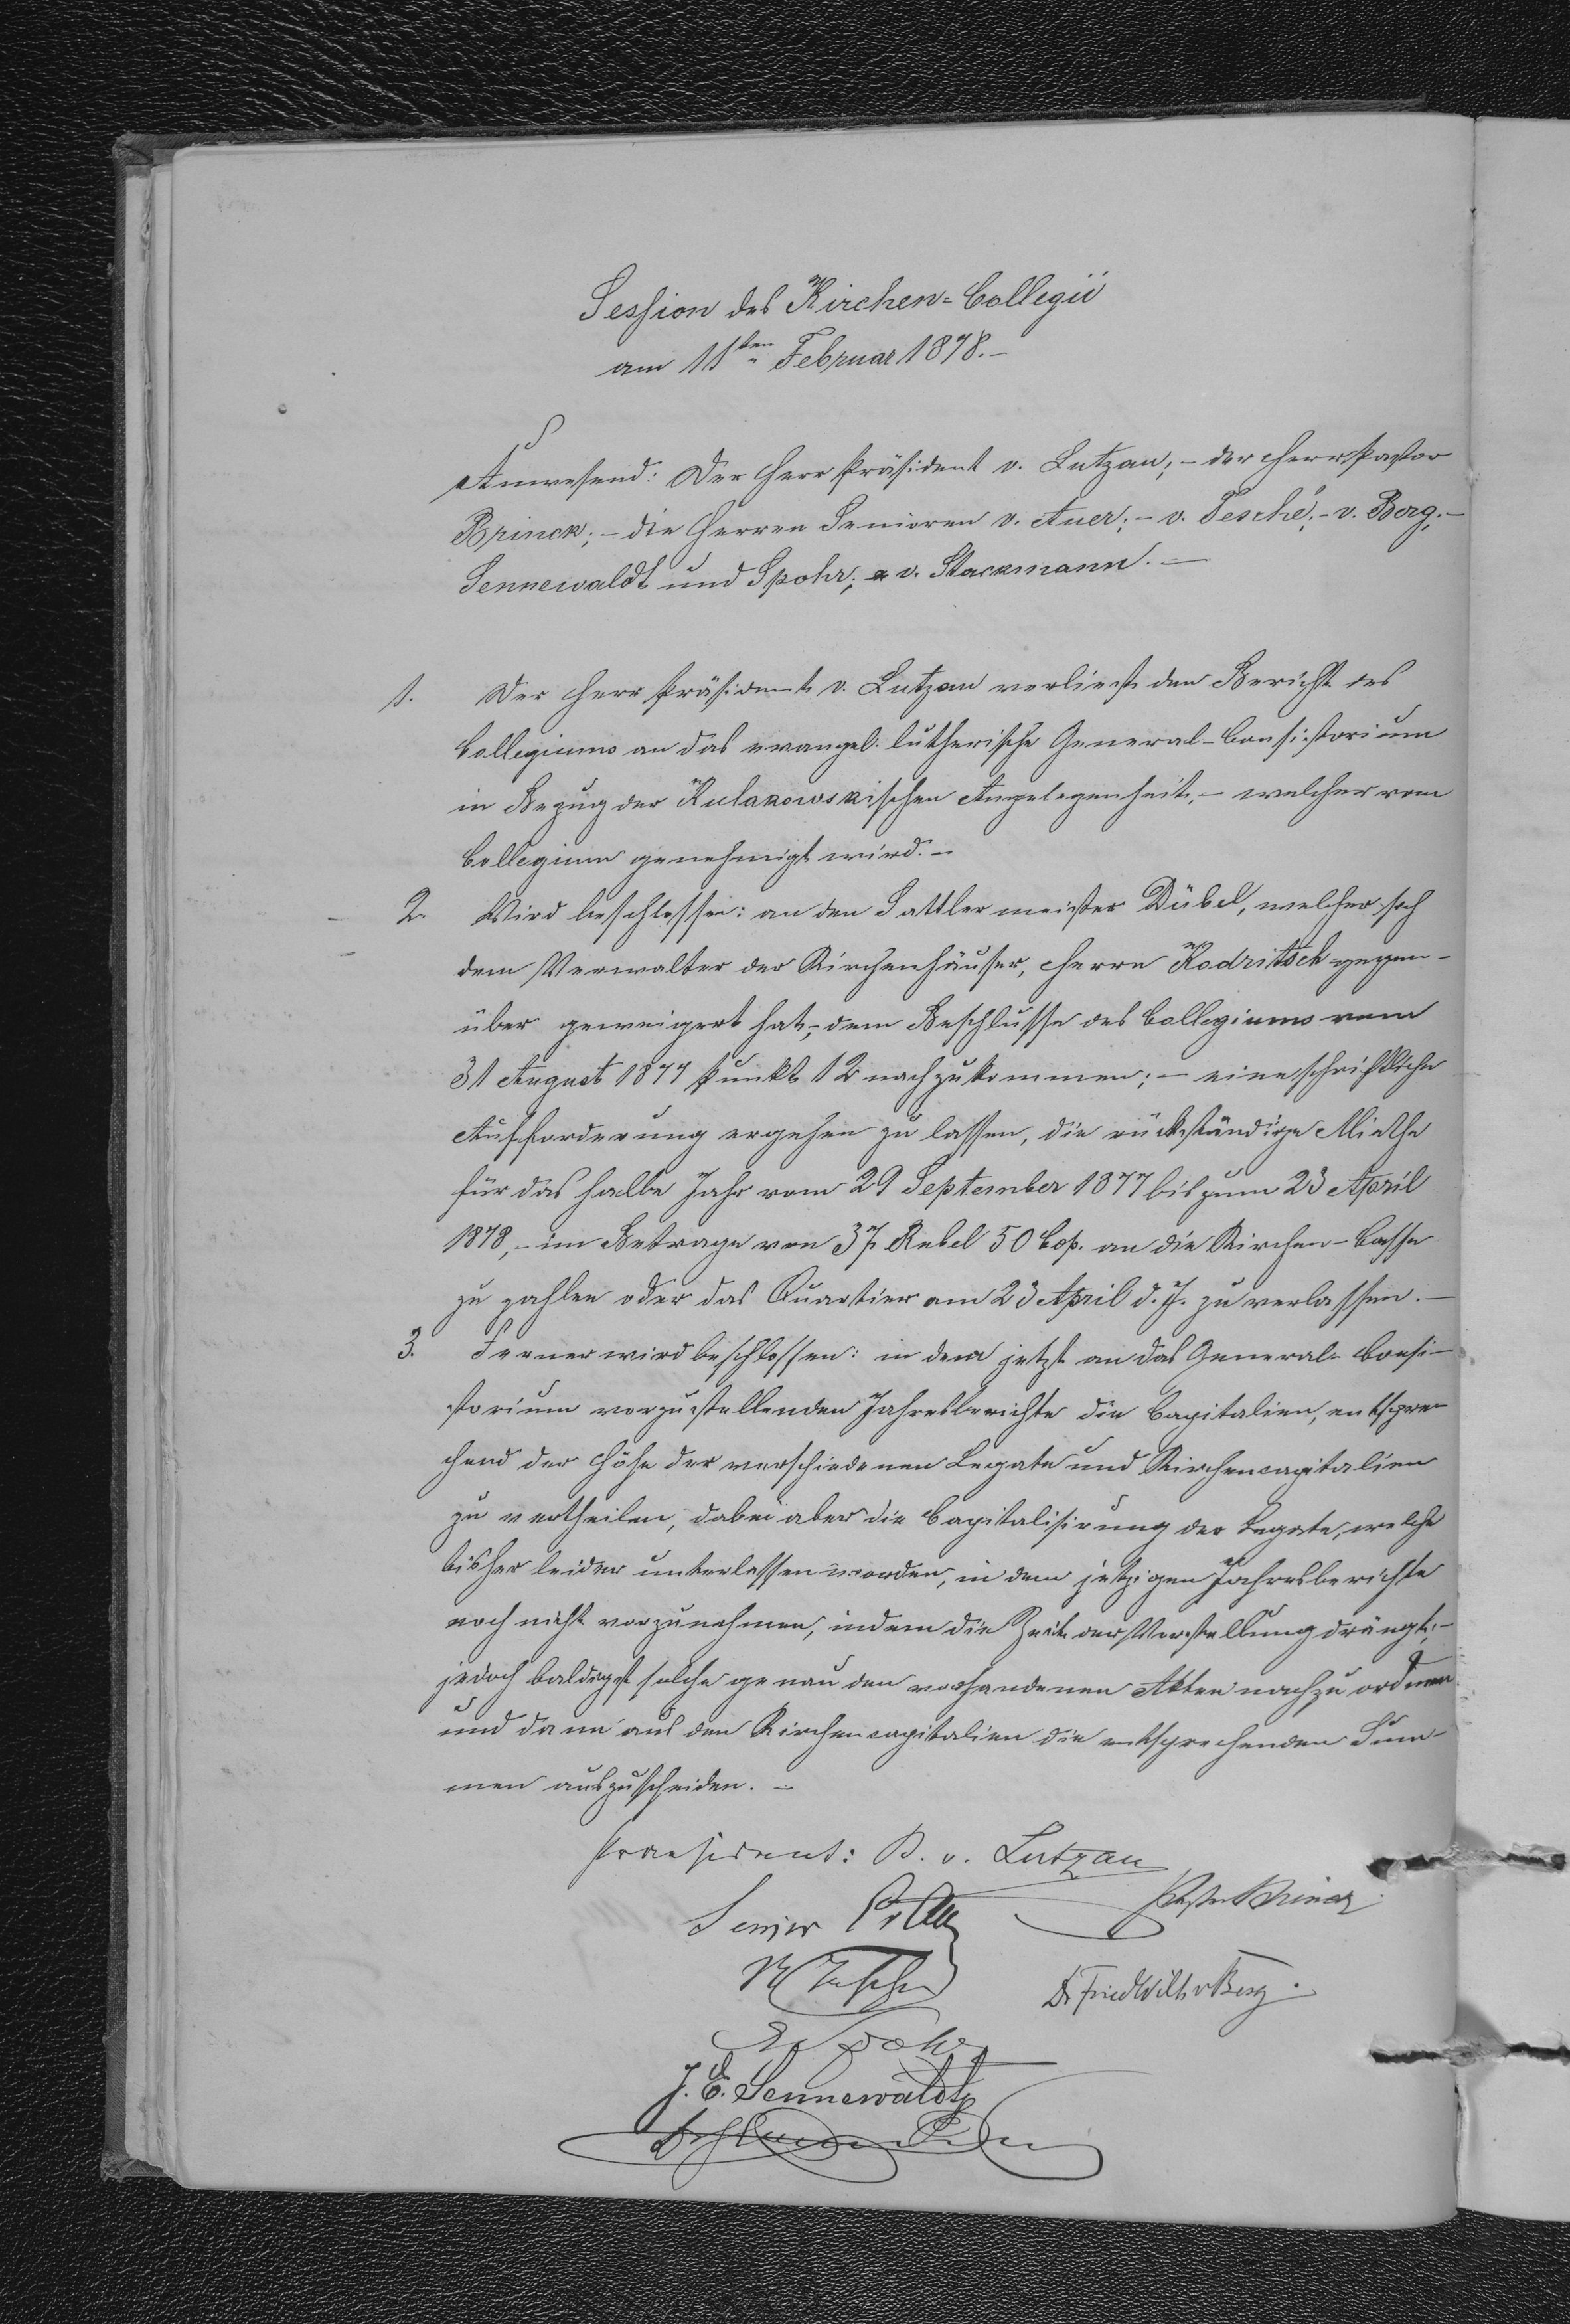 Session des Kirchen-Collegii
am 11ten Februar 1878.-
Anwesend: Der Herr Präsident v. Lutzau; - der Herr Pastor
Brinck; - die Herren Senioren v. Auer; - v. Tesché; - v. Berg; -
Sennewaldt und Spohr; v. Stackmann. -
1. Der Herr Präsident v. Lutzau verliest den Bericht des
Collegiums an das evangel. lutherische General-Consistorium
in Bezug der Kulakowskischen Angelegenheit, - welcher vom
Collegium genehmigt wird. -
2. Wird beschlossen: an den Sattlermeister Dübel, welcher sich
dem Verwalter der Kirchenhäuser, Herrn Kodritsch gegen-
über geweigert hat, dem Beschlusse des Collegiums vom
31 August 1877 Punkt 12 nachzukommen; - eine schriftliche
Aufforderung ergehen zu lassen, die rückständige Miethe
für das halbe Jahr vom 29 September 1877 bis zum 23 April
1878, - im Betrage von 37 Rubel 50 Cop. an die Kirchen-Casse
zu zahlen oder das Quartier am 23 April d. J. zu verlassen. -
3. Ferner wird beschlossen: in dem jetzt an das General-Consi-
storium vorzustellenden Jahresberichte die Capitalien, entspre-
chend der Höhe der verschiedenen Legate und Kirchencapitalien
zu vertheilen, dabei aber die Capitalisirung der Legate, welche
bisher leider unterlassen worden, in dem jetzigen Jahresberichte
noch nicht vorzunehmen, indem die Zeit der Vorstellung drängt; -
jedoch baldigst solche genau den vorhandenen Akten nach zu ordnen
und dann aus den Kirchencapitalien die entsprechenden Sum-
men auszuscheiden. -
Praesident: B. v. Lutzau
Senior Pastor Brinck
Tesche Dr Fried Wilh v Berg.
E Spohr
J. E. Sennewaldt